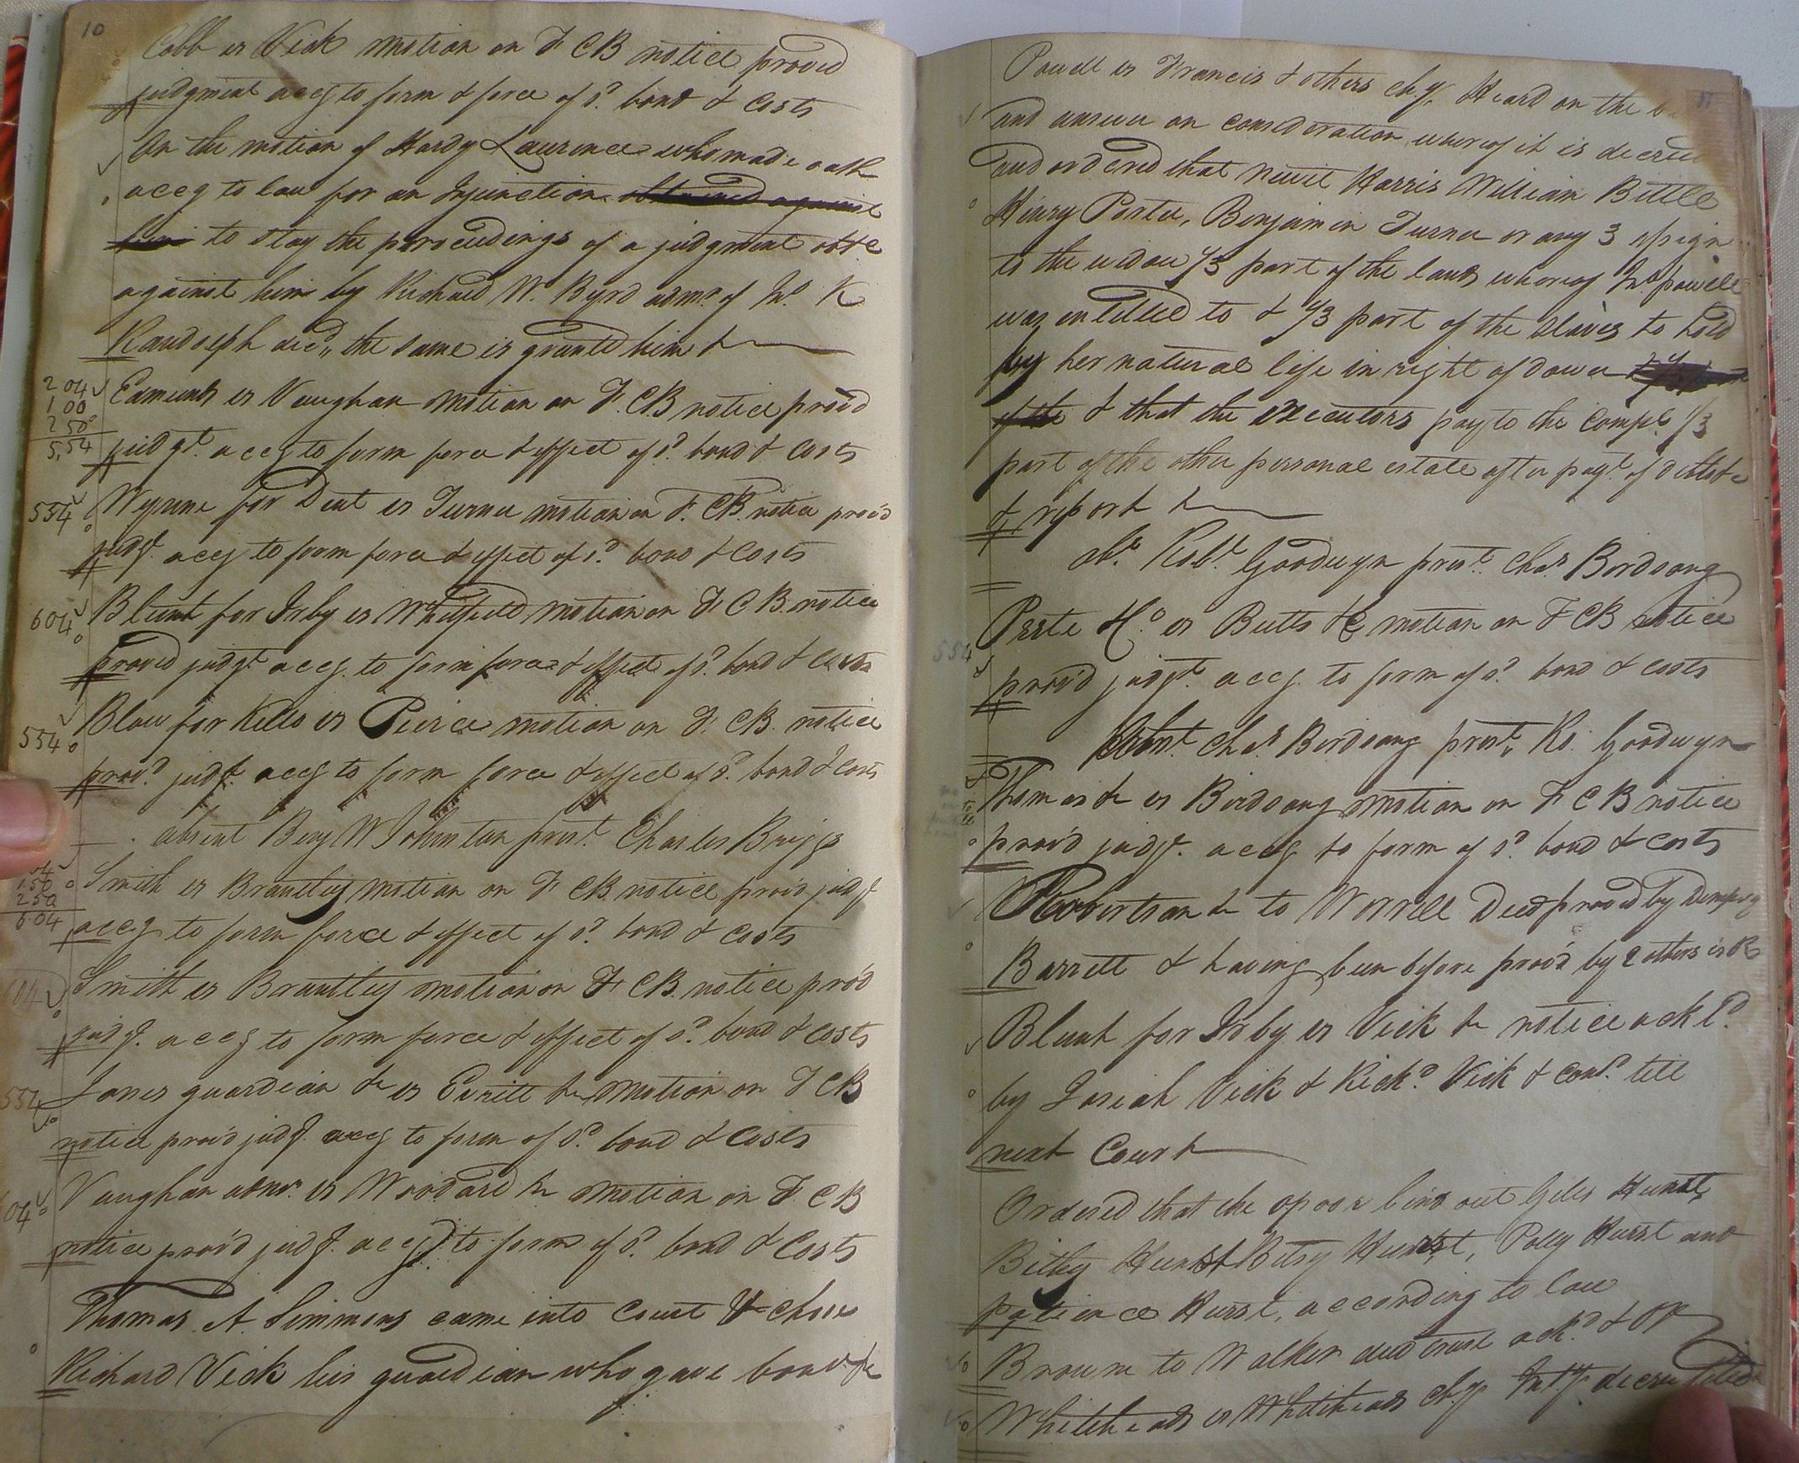 10
Cobb vs Vick motion on F CB notice proved
judgment accg to form & force of sd. bond & Costs
On the motion of Hardy Laurence who made oath
accg to law for an Injunction obtained against
him to stay the proceedings of a judgment obtd
against him by Richard W. Byrd admr. of Jno. K
Randolph decd, the same is granted him &
204
100
250
5,54
Edmunds vs Vaughan motion on F. CB notice provd
judgt. accg to form force & effect of sd. bond & Costs
554
Wynne for Dent vs Turner motion on F. CB. notice prov'd
judgt. accg to form force & effect of sd. bond & Costs
604
Blunt for Irby vs Whitfield motion on F. CB. notice
proved judgt accg. to form force & effect of sd. bond & Costs
554
Blow for Kello vs Peirce motion on F. CB. notice
provd. judgt. accg to form force & effect of sd. bond & Costs
absent Benj W Johnston prest. Charles Briggs
250
604
Smith vs Brantley motion on F CB. notice prov'd judgt
accg to form force & effect of sd. bond & Costs
Smith vs Brantley motion on F CB. notice prov'd
judgt. accg to form force & effect of sd. bond & Costs
554
Jones guardian &c vs Everitt &c motion on F CB
notice prov'd judgt. accg to form of sd. bond & Costs
Vaughan admr. vs Woodard &c motion on F. CB
notice prov'd judgt. accg to form of sd. bond & Costs
Thomas A. Simmons came into Court & chose
Richard Vick his guardian who gave bond &c
11
Powell vs Francis & others chy. Heard on the
and answer on consideration whereof it is decreed
and ordered that Newit Harris William Bittle
Henry Porter, Benjamin Turner or any 3 assign
to the widow 1/3 part of the lands whereof Jno. powell
was entitled to & 1/3 part of the slaves to hold
by her natural life in right of dower
of the & that the executors pay to the Compt. 1/3
part of the other personal estate after payt. of debts &c
& report &
Robt. Goodwyn prest. Chas. Birdsong
554
Prste & Co. vs Butts &c motion on F CB notice
prov'd judgt. accg. to form of sd. bond & Costs
Absnt. Chas. Birdsong prest. Ro. Goodwyn
Thomas &c vs Birdsong motion on F CB notice
prov'd judgt. accg to form of sd. bond & Costs
Robertson &c to Worrell Deed proved by Dempsy
Barrett & having been before prov'd by 2 others is OR
Blunt for Irby vs Vick &c notice ackld.
by Josiah Vick & Richd. Vick & contd. till
next Court
Ordered that the opoor bind out Giles Hurst,
Bithy Hurst Betsy Hurst, Polly Hurst and
patience Hurst, according to law
Browne to Walker deed trust ackd. & OR
Whitehead vs Whitehead chy. decree filed